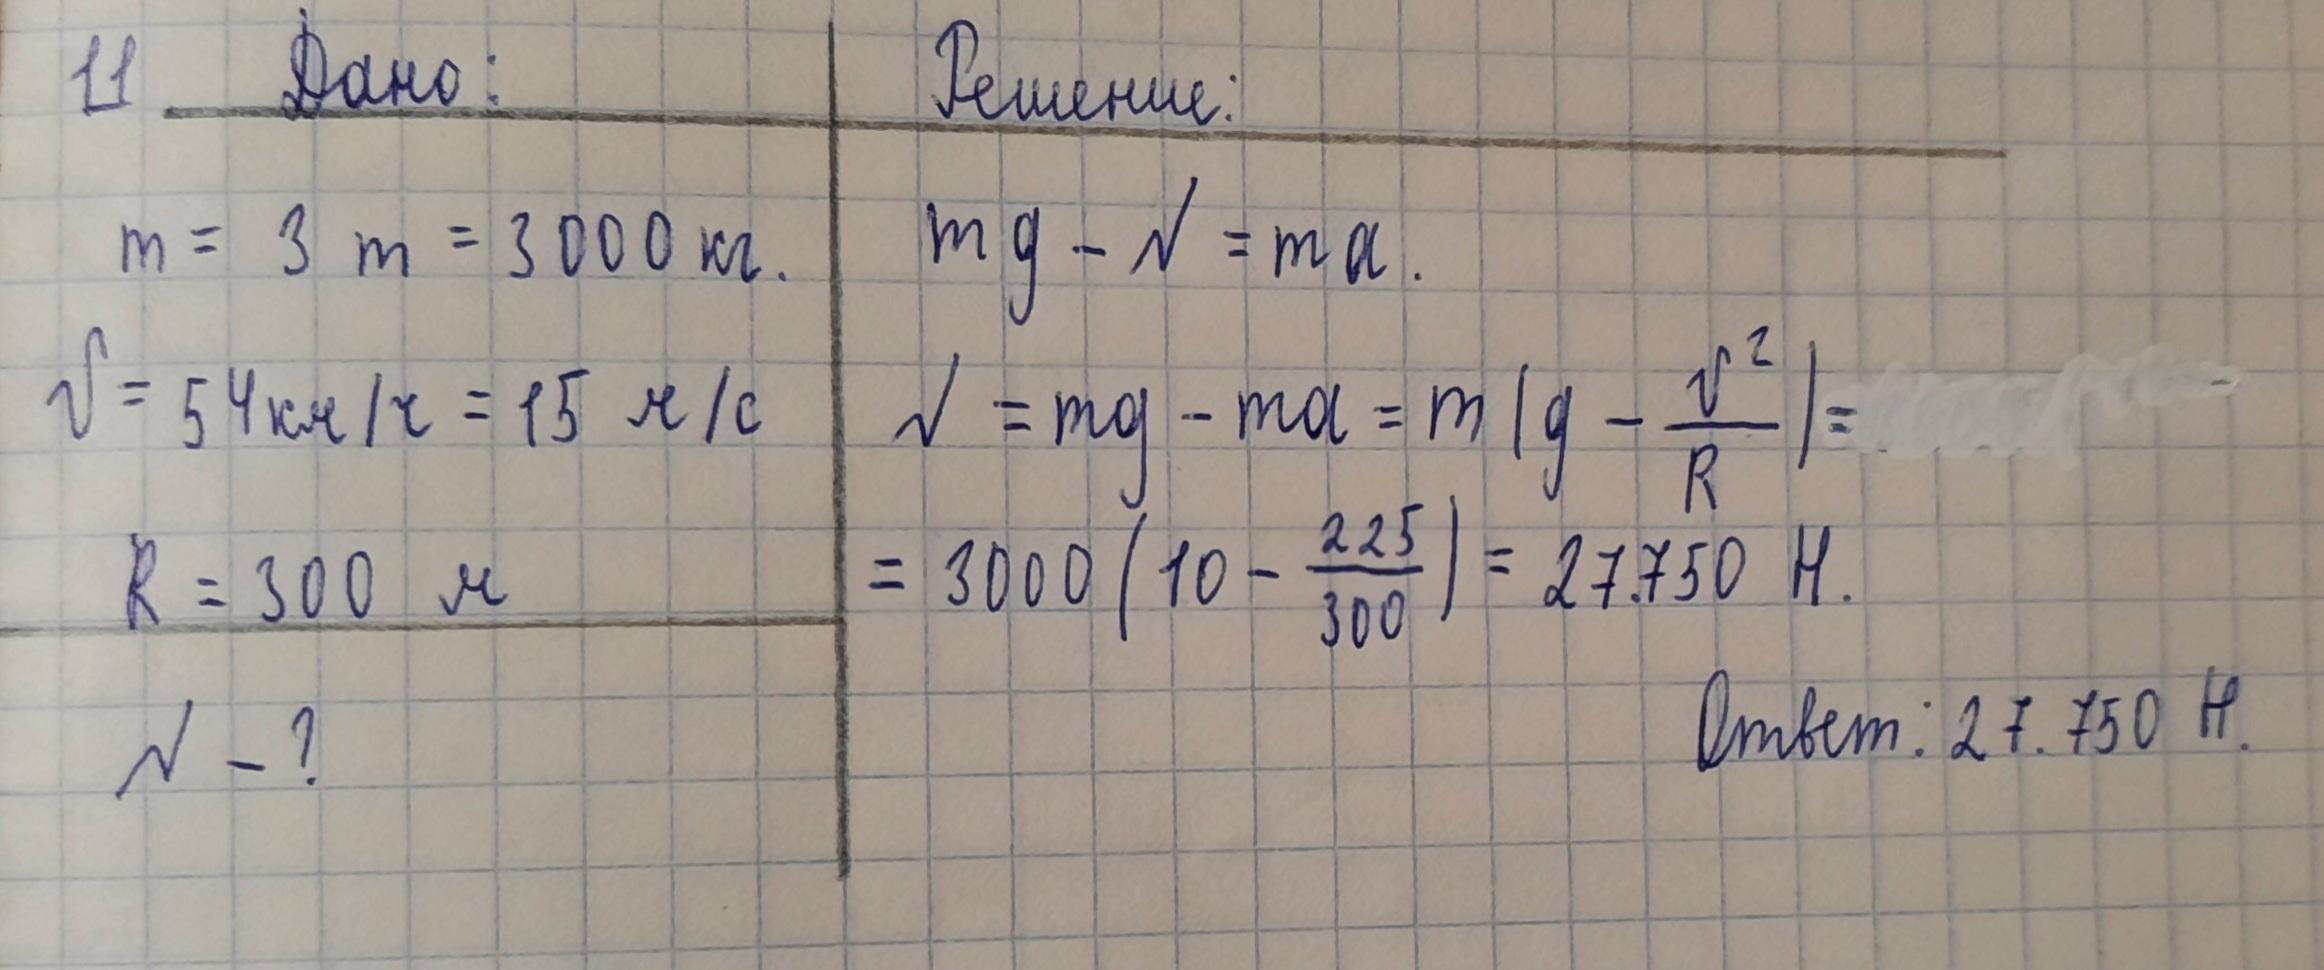 11 Дано:
m = 3 т = 3000 кг.
v = 54 км/ч = 15 м/с
R = 300 м
N - ?
Решение:
mg - N = ma.
N = mg - ma = m(g - v²/R) =
= 3000(10 - 225/300) = 27.750 Н.
Ответ: 27.750 Н.